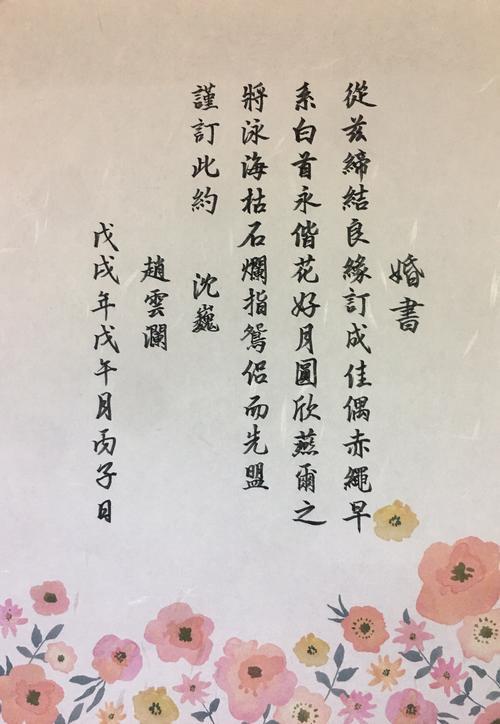 婚書
從茲締結良緣訂成佳偶赤繩早
系白首永偕花好月圓欣燕爾之
將泳海枯石爛指鴛侶而先盟
謹訂此約 沈巍
趙雲瀾
戊戌年戊午月丙子日